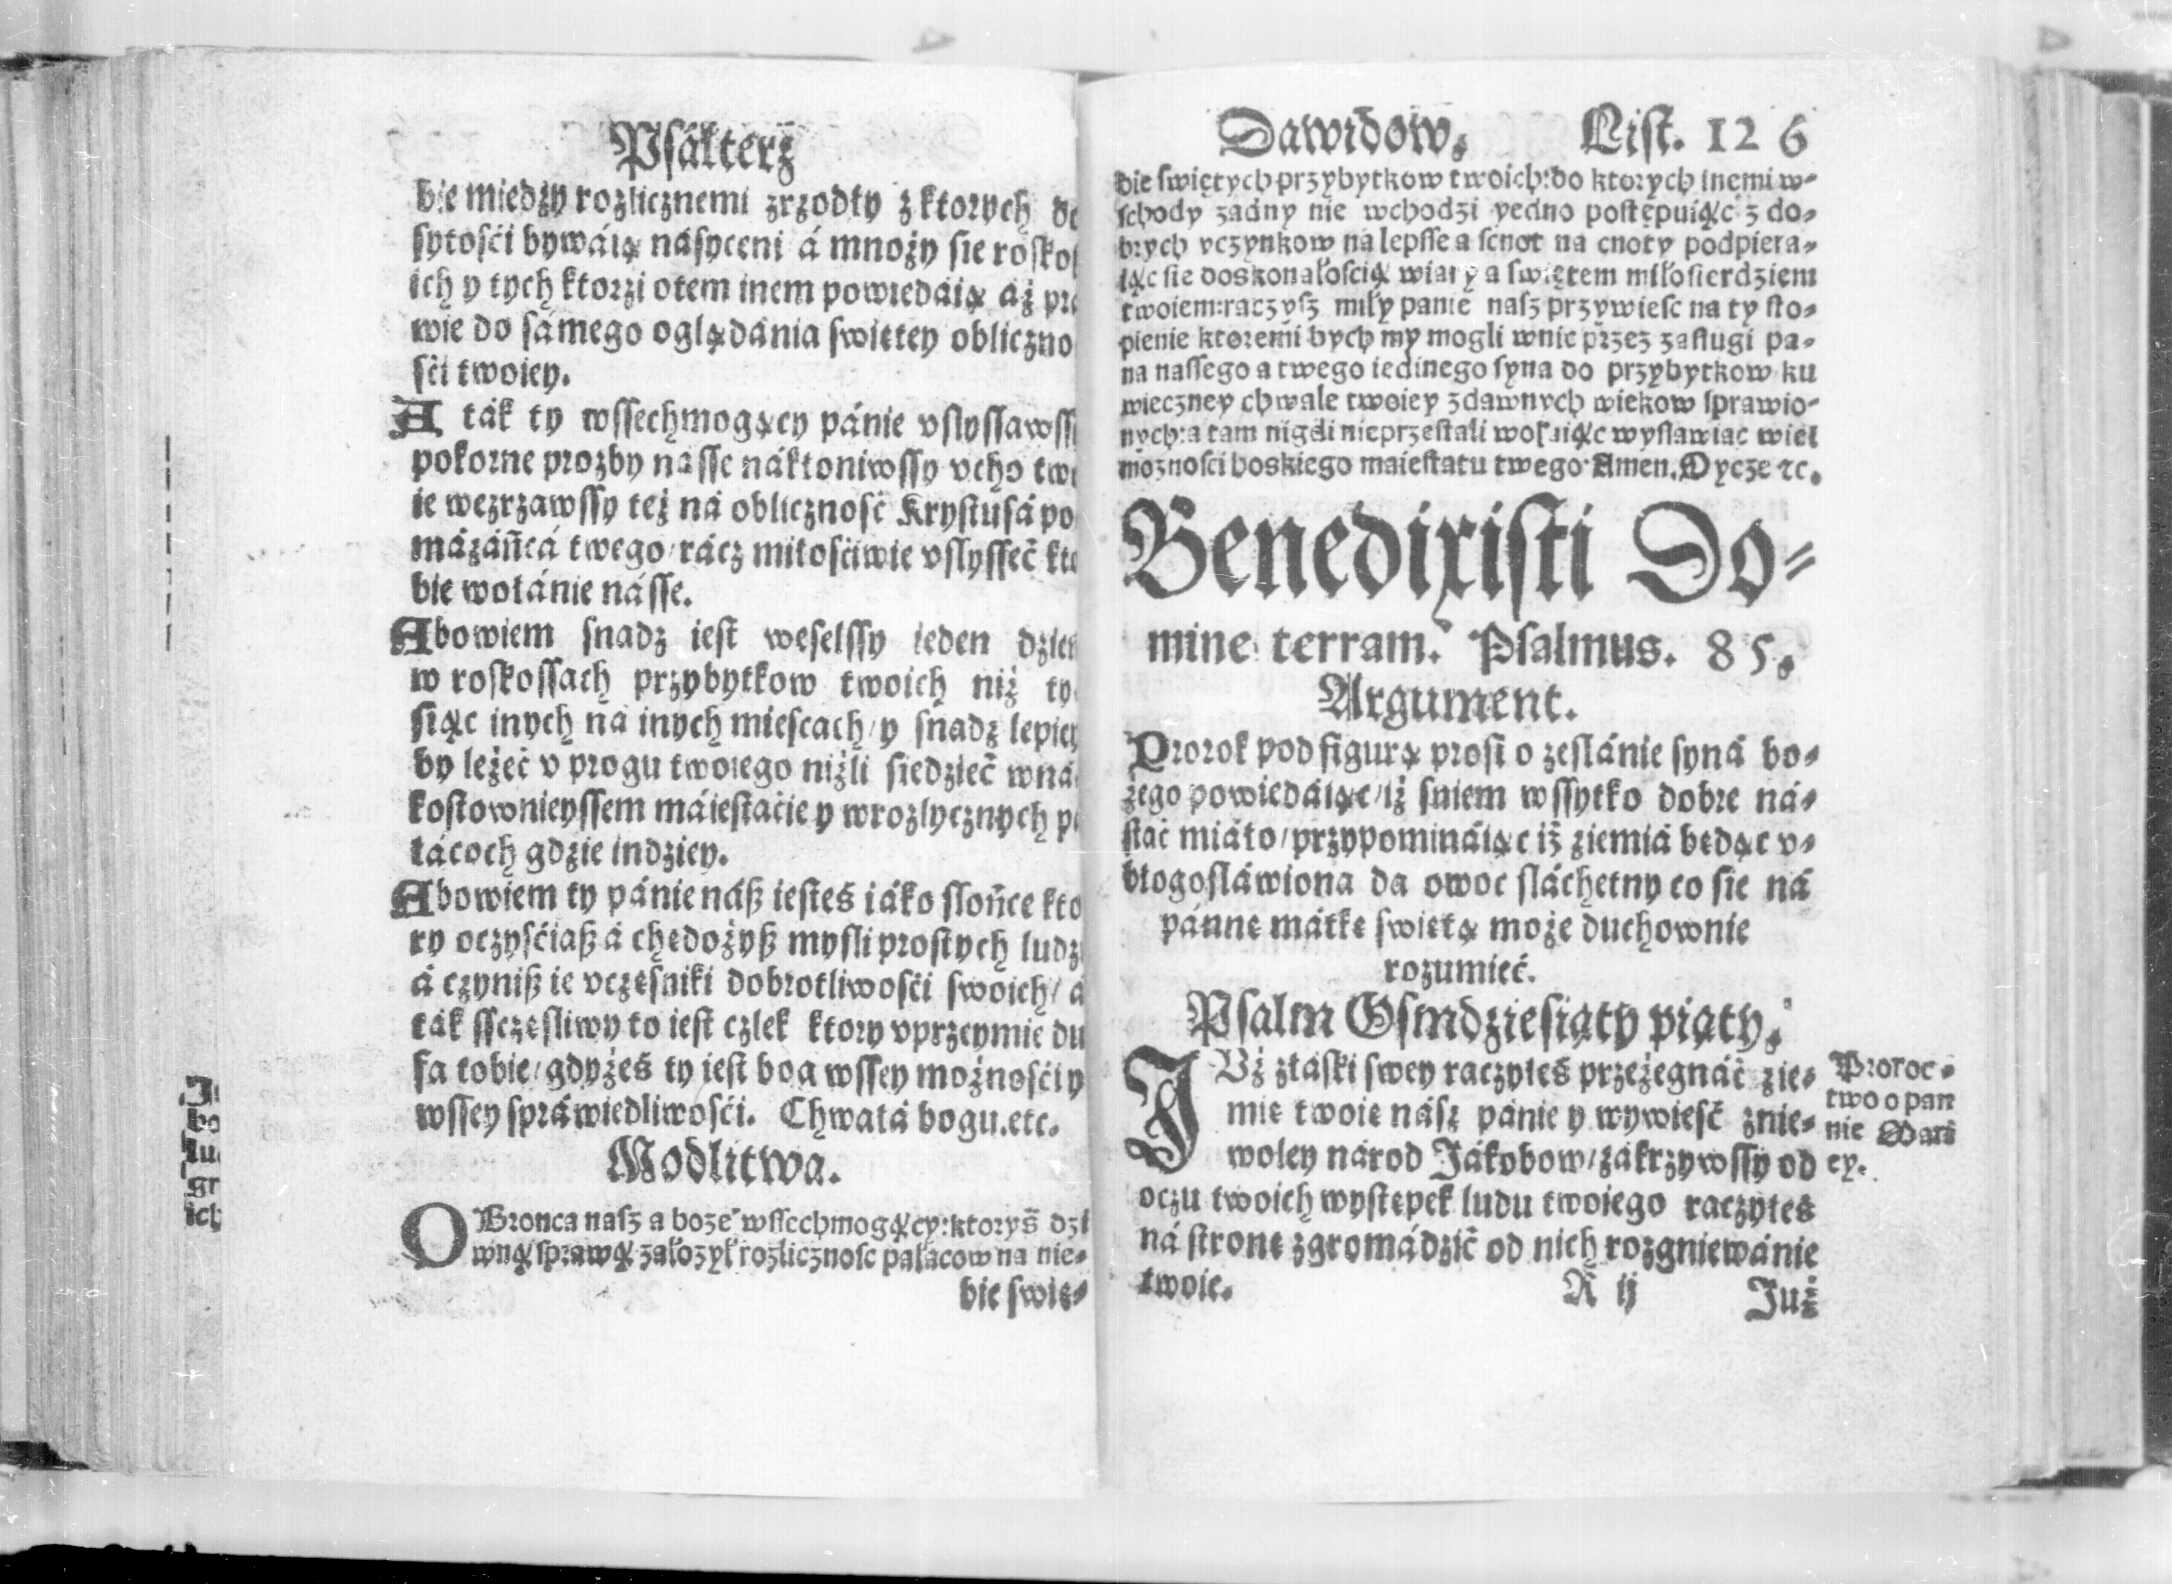 Psałterz
bie miedzy rozlicznemi zrzodły z ktorych do
sytośći bywáią násyceni á mnoży sie roskos
ich y tych ktorzi otem inem powiedáią áż prá
wie do sámego oglądánia swiętey obliczno
śći twoiey.
A ták ty wssechmogący pánie vslyssawssy
pokorne prozby násse nákłoniwssy vcho two
ie wezrzawssy też ná obliczność Krystusá po
mázáńcá twego / rácz miłośćiwie vslysseć kto
bie wołánie násse.
Abowiem snadz iest weselssy ieden dzień
w roskossach przybytkow twoich niż ty
siąc inych ná inych miescach / y snadz lepiey
by leżeć v progu twoiego niżli siedzieć wná
kosztownieyssem máiestaćie y wrozlycznych pá
łácoch gdzie indziey.
Abowiem ty pánie náß iesteś iáko słońce kto
ry oczyśćiaß á chędożyß mysli prostych ludzi
á czyniß ie vczesniki dobrotliwośći swoich / á
ták ssczęsliwy to iest człek ktory vprzeymie du
fa tobie / gdyżeś ty iest bog wssey możnośći y
wssey spráwiedliwośći. Chwałá bogu.etc.
Modlitwa.
OBronca nasz a boże wssechmogący:ktoryś dzi
wną sprawą założył rozliczność pałacow na nie-
bie swię-
Dawidow. List. 126
bie swiętych przybytkow twoich:do ktorych inemi w-
schody żadny nie wchodzi yedno postępuiąc z do-
brych vczynkow na lepsse a scnot na cnoty podpiera-
iąc sie doskonałością wiary a swiętem miłosierdziem
twoiem:raczysz miły panie nasz przywiesc na ty sto-
pienie ktoremi bych my mogli wnic przez zasługi pa-
na nassego a twego iedinego syna do przybytkow ku
wieczney chwale twoiey zdawnych wiekow sprawio-
nych:a tam nigdi nieprzestali wołaiąc wysławiac wiel
możnosci boskiego maiestatu twego Amen. Oycze etc.
Benedixisti Do-
mine terram. Psalmus. 85.
Argument.
Prorok pod figurą prosi o zesłánie syná bo-
żego powiedáiąc / iż sniem wssytko dobre ná-
stáć miáło / przypomináiąc iż ziemiá będąc v-
błogosłáwiona da owoc sláchetny co sie ná
pánnę mátkę swiętą może duchownie
rozumieć.
Psalm Osmdziesiąty piąty.
IVż złáski swey raczyłeś przeżegnáć zie-
mię twoię nász pánie y wywieść znie-
woley národ Jákobow / zákrzywssy od
oczu twoich występek ludu twoiego raczyłeś
ná stronę zgromádzić od nich rozgniewánie
twoie. R ij Już
Proroc-
two o pan
nie Mari
ey.